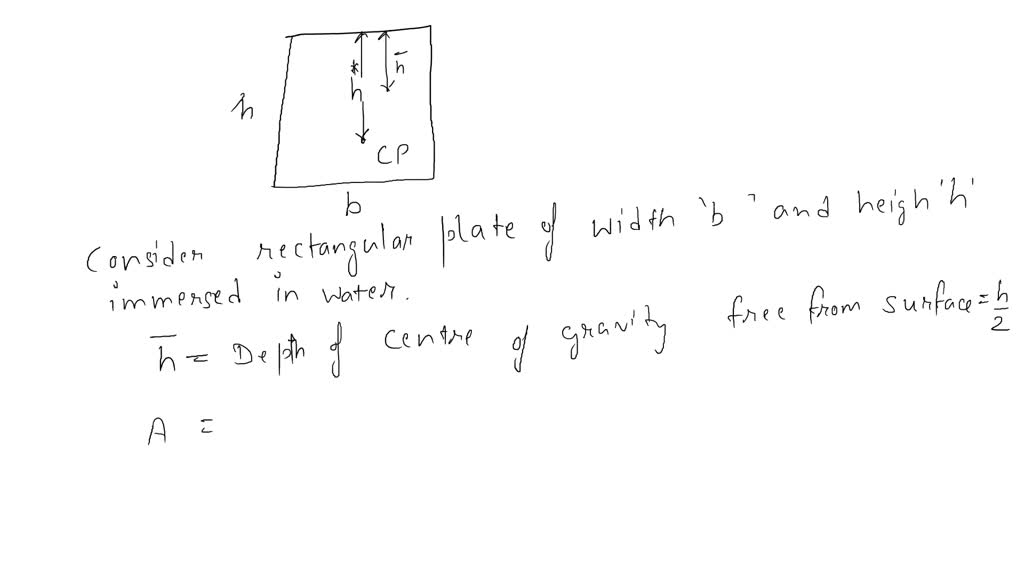 h̄
*
h
h
CP
b
Consider rectangular plate of width 'b' and heigh 'h'
immersed in water.
h̄ = Depth of centre of gravity free from surface = h/2
A =